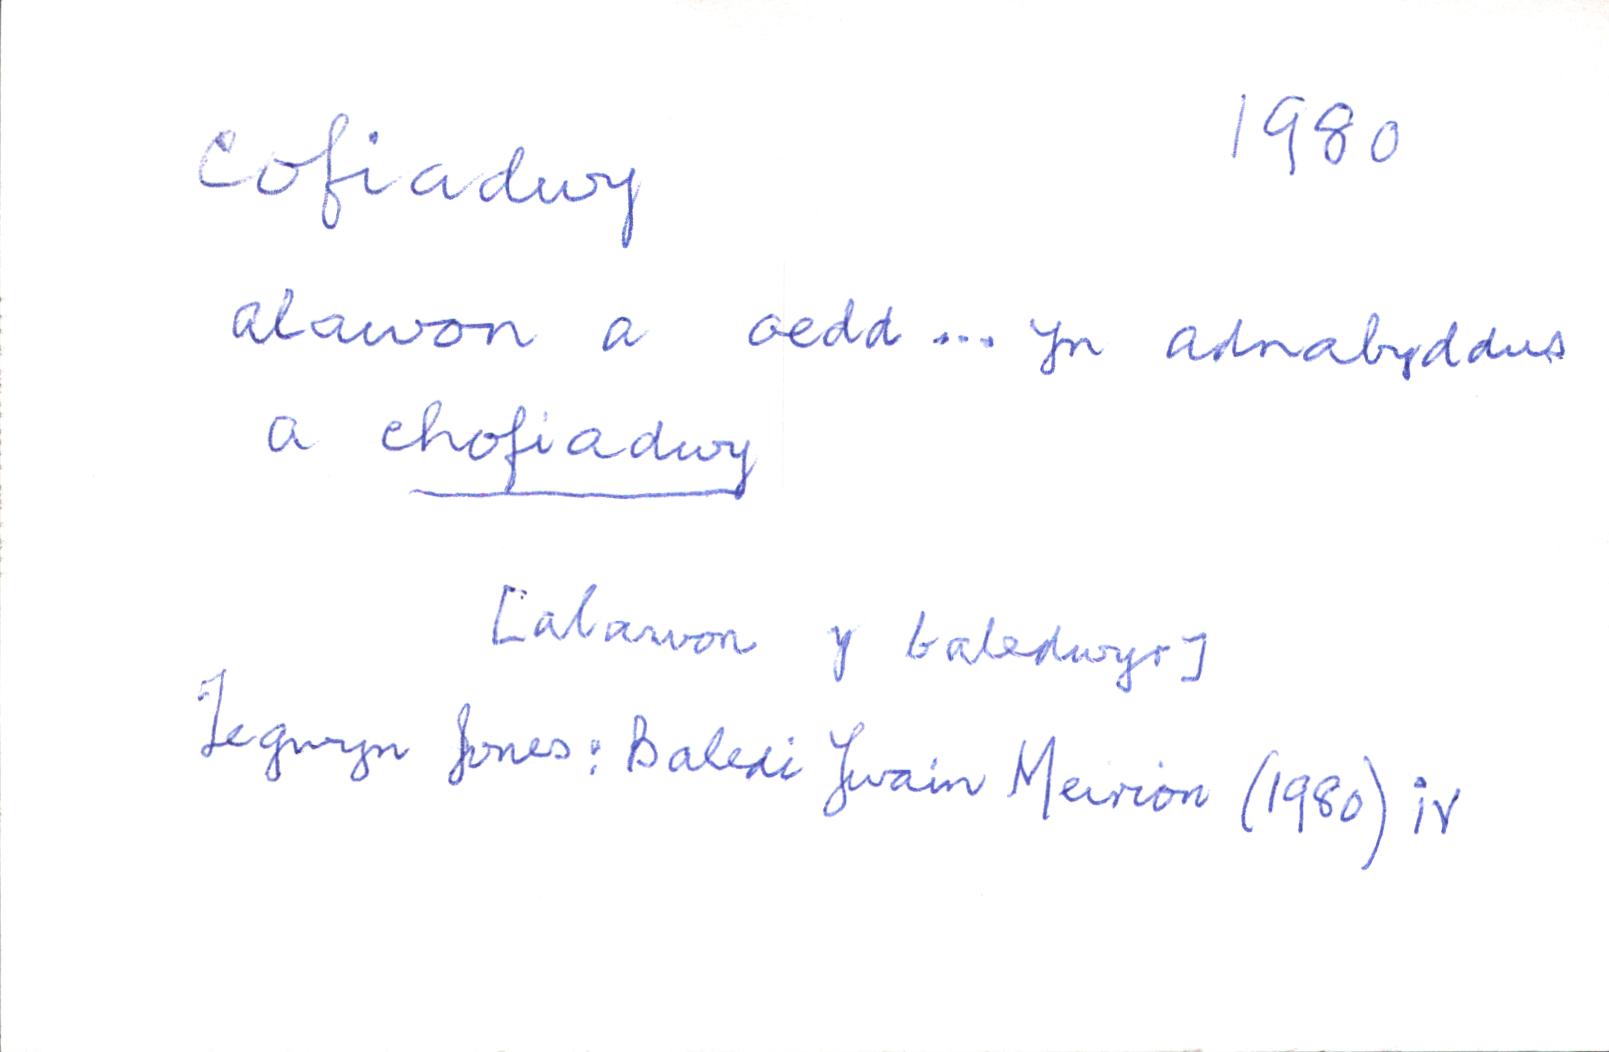 Cofiadwy 1980
alawon a oedd ... yn adnabyddus
a chofiadwy
[alawon y baledwyr]
Tegwyn Jones: Baledi Ywain Meirion (1980) iv